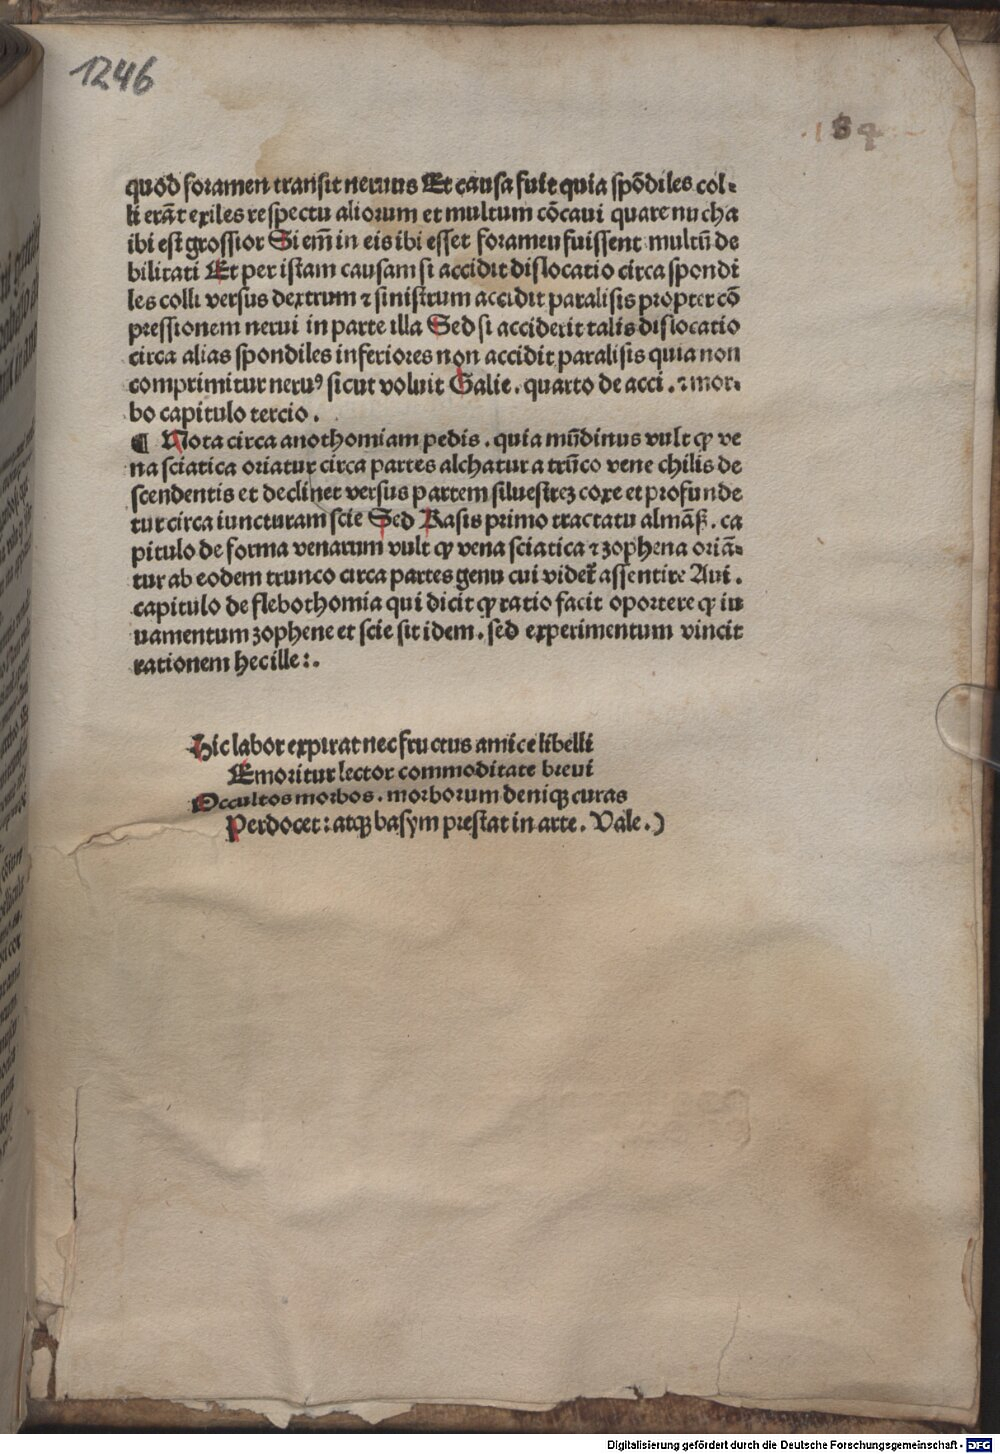 1246
quod foramen transit neruus Et causa fuit quia spōdiles col-
li erāt exiles respectu aliorum et multum cōcaui quare nucha
ibi est grossior Si em̄ in eis ibi esset foramen fuissent multū de
bilitati Et per istam causam si accidit dislocatio circa spondi
les colli versus dextrum ⁊ sinistrum accidit paralisis propter cō
pressionem nerui in parte illa Sed si acciderit talis dislocatio
circa alias spondiles inferiores non accidit paralisis quia non
comprimitur neruꝰ sicut voluit Galie. quarto de acci. ⁊ mor-
bo capitulo tercio.
¶ Nota circa anothomiam pedis. quia mūdinus vult ꝙ ve
na sciatica oriatur circa partes alchatur a trūco vene chilis de
scendentis et declinet versus partem siluestreꝫ coxe et profunde
tur circa iuncturam scie Sed Rasis primo tractatu almāß. ca
pitulo de forma venarum vult ꝙ vena sciatica ⁊ zophena oriā-
tur ab eodem trunco circa partes genu cui videt̄ assentire Aui.
capitulo de flebothomia qui dicit ꝙ ratio facit oportere ꝙ iu
uamentum zophene et scie sit idem. sed experimentum vincit
rationem hec ille:.
Hic labor expirat nec fructus amice libelli
Emoritur lector commoditate breui
Occultos morbos. morborum deniqꝫ curas
Perdocet: atqꝫ basym prestat in arte. Vale.)
Digitalisierung gefördert durch die Deutsche Forschungsgemeinschaft - DFG